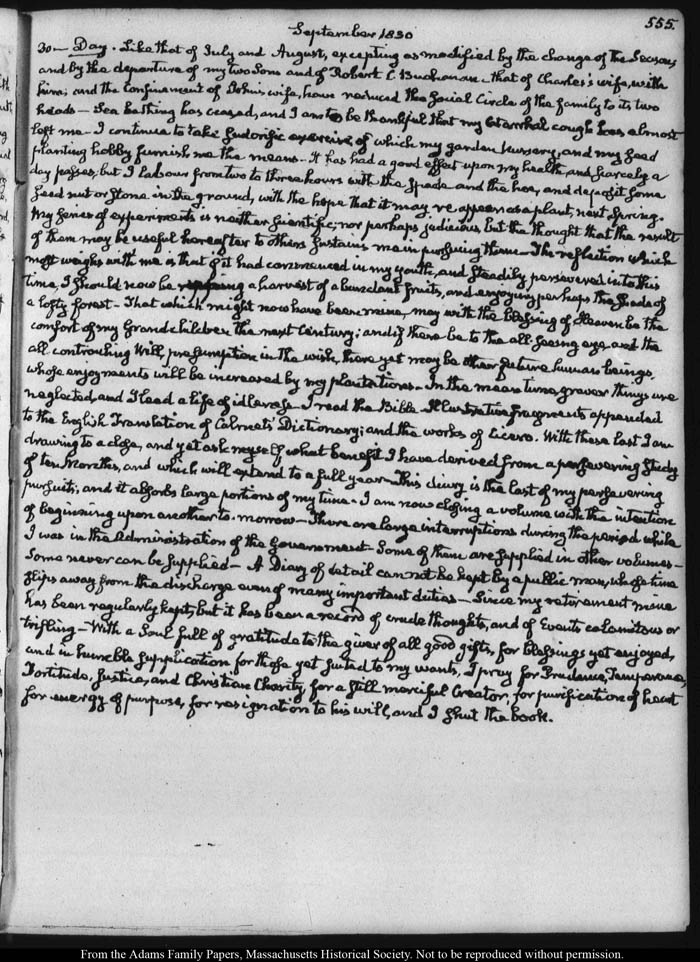 555.
September 1830
30 — Day. Like that of July and August, excepting as modified by the change of the Season,
and by the departure of my two Sons and of Robert C Buchanan — that of Charles's wife, with
him; and the confinement of John's wife, have reduced the social Circle of the family to its two
heads — Sea bathing has ceased, and I am to be thankful that my Catarrhal cough has almost
left me — I continue to take sudorific exercise, of which my garden Nursery, and my seed
planting hobby furnish me the means — It has had a good effect upon my health, and scarcely a
day passes, but I labour from two to three hours with the Spade and the hoe, and deposit some
seed nut or stone in the ground, with the hope that it may re-appear as a plant, next Spring.
My series of experiments is neither scientific, nor perhaps judicious, but the thought that the result
of them may be useful hereafter to others sustains me in pursuing them — The reflection which
most weighs with me is that if it had commenced in my youth, and steadily persevered in to this
time, I should now be reaping a harvest of abundant fruits, and enjoying perhaps the shade of
a lofty forest — That which might now have been mine, may with the blessing of Heaven be the
comfort of my Grandchildren the next Century; and if there be to the all-seeing eye, and the
all controuling Will, presumption in the wish, there yet may be other future human beings,
whose enjoyments will be increased by my plantations — In the mean time, graver things are
neglected, and I lead a life of idleness — I read the Bible — Illustrative fragments appended
to the English Translation of Calmet's Dictionary; and the works of Cicero. With these last I am
drawing to a close, and yet ask myself what benefit I have derived from a persevering study
of ten Months, and which will extend to a full year — This diary is the last of my persevering
pursuits; and it absorbs large portions of my time — I am now closing a volume with the intention
of beginning upon another to-morrow — There are large interruptions during the period while
I was in the Administration of the Government — Some of them are supplied in other volumes —
Some never can be supplied — A Diary of detail can not be kept by a public man, whose time
slips away from the discharge even of many important duties — Since my retirement mine
has been regularly kept, but it has been a record of crude thoughts, and of Events calamitous or
trifling — With a Soul full of gratitude to the giver of all good gifts, for blessings yet enjoyed,
and in humble supplication for those yet suited to my wants, I pray for Prudence, Temperance,
Fortitude, Justice, and Christian Charity, for a still merciful Creator, for purification of heart
for energy of purpose, for resignation to his will, and I shut the book.
From the Adams Family Papers, Massachusetts Historical Society. Not to be reproduced without permission.